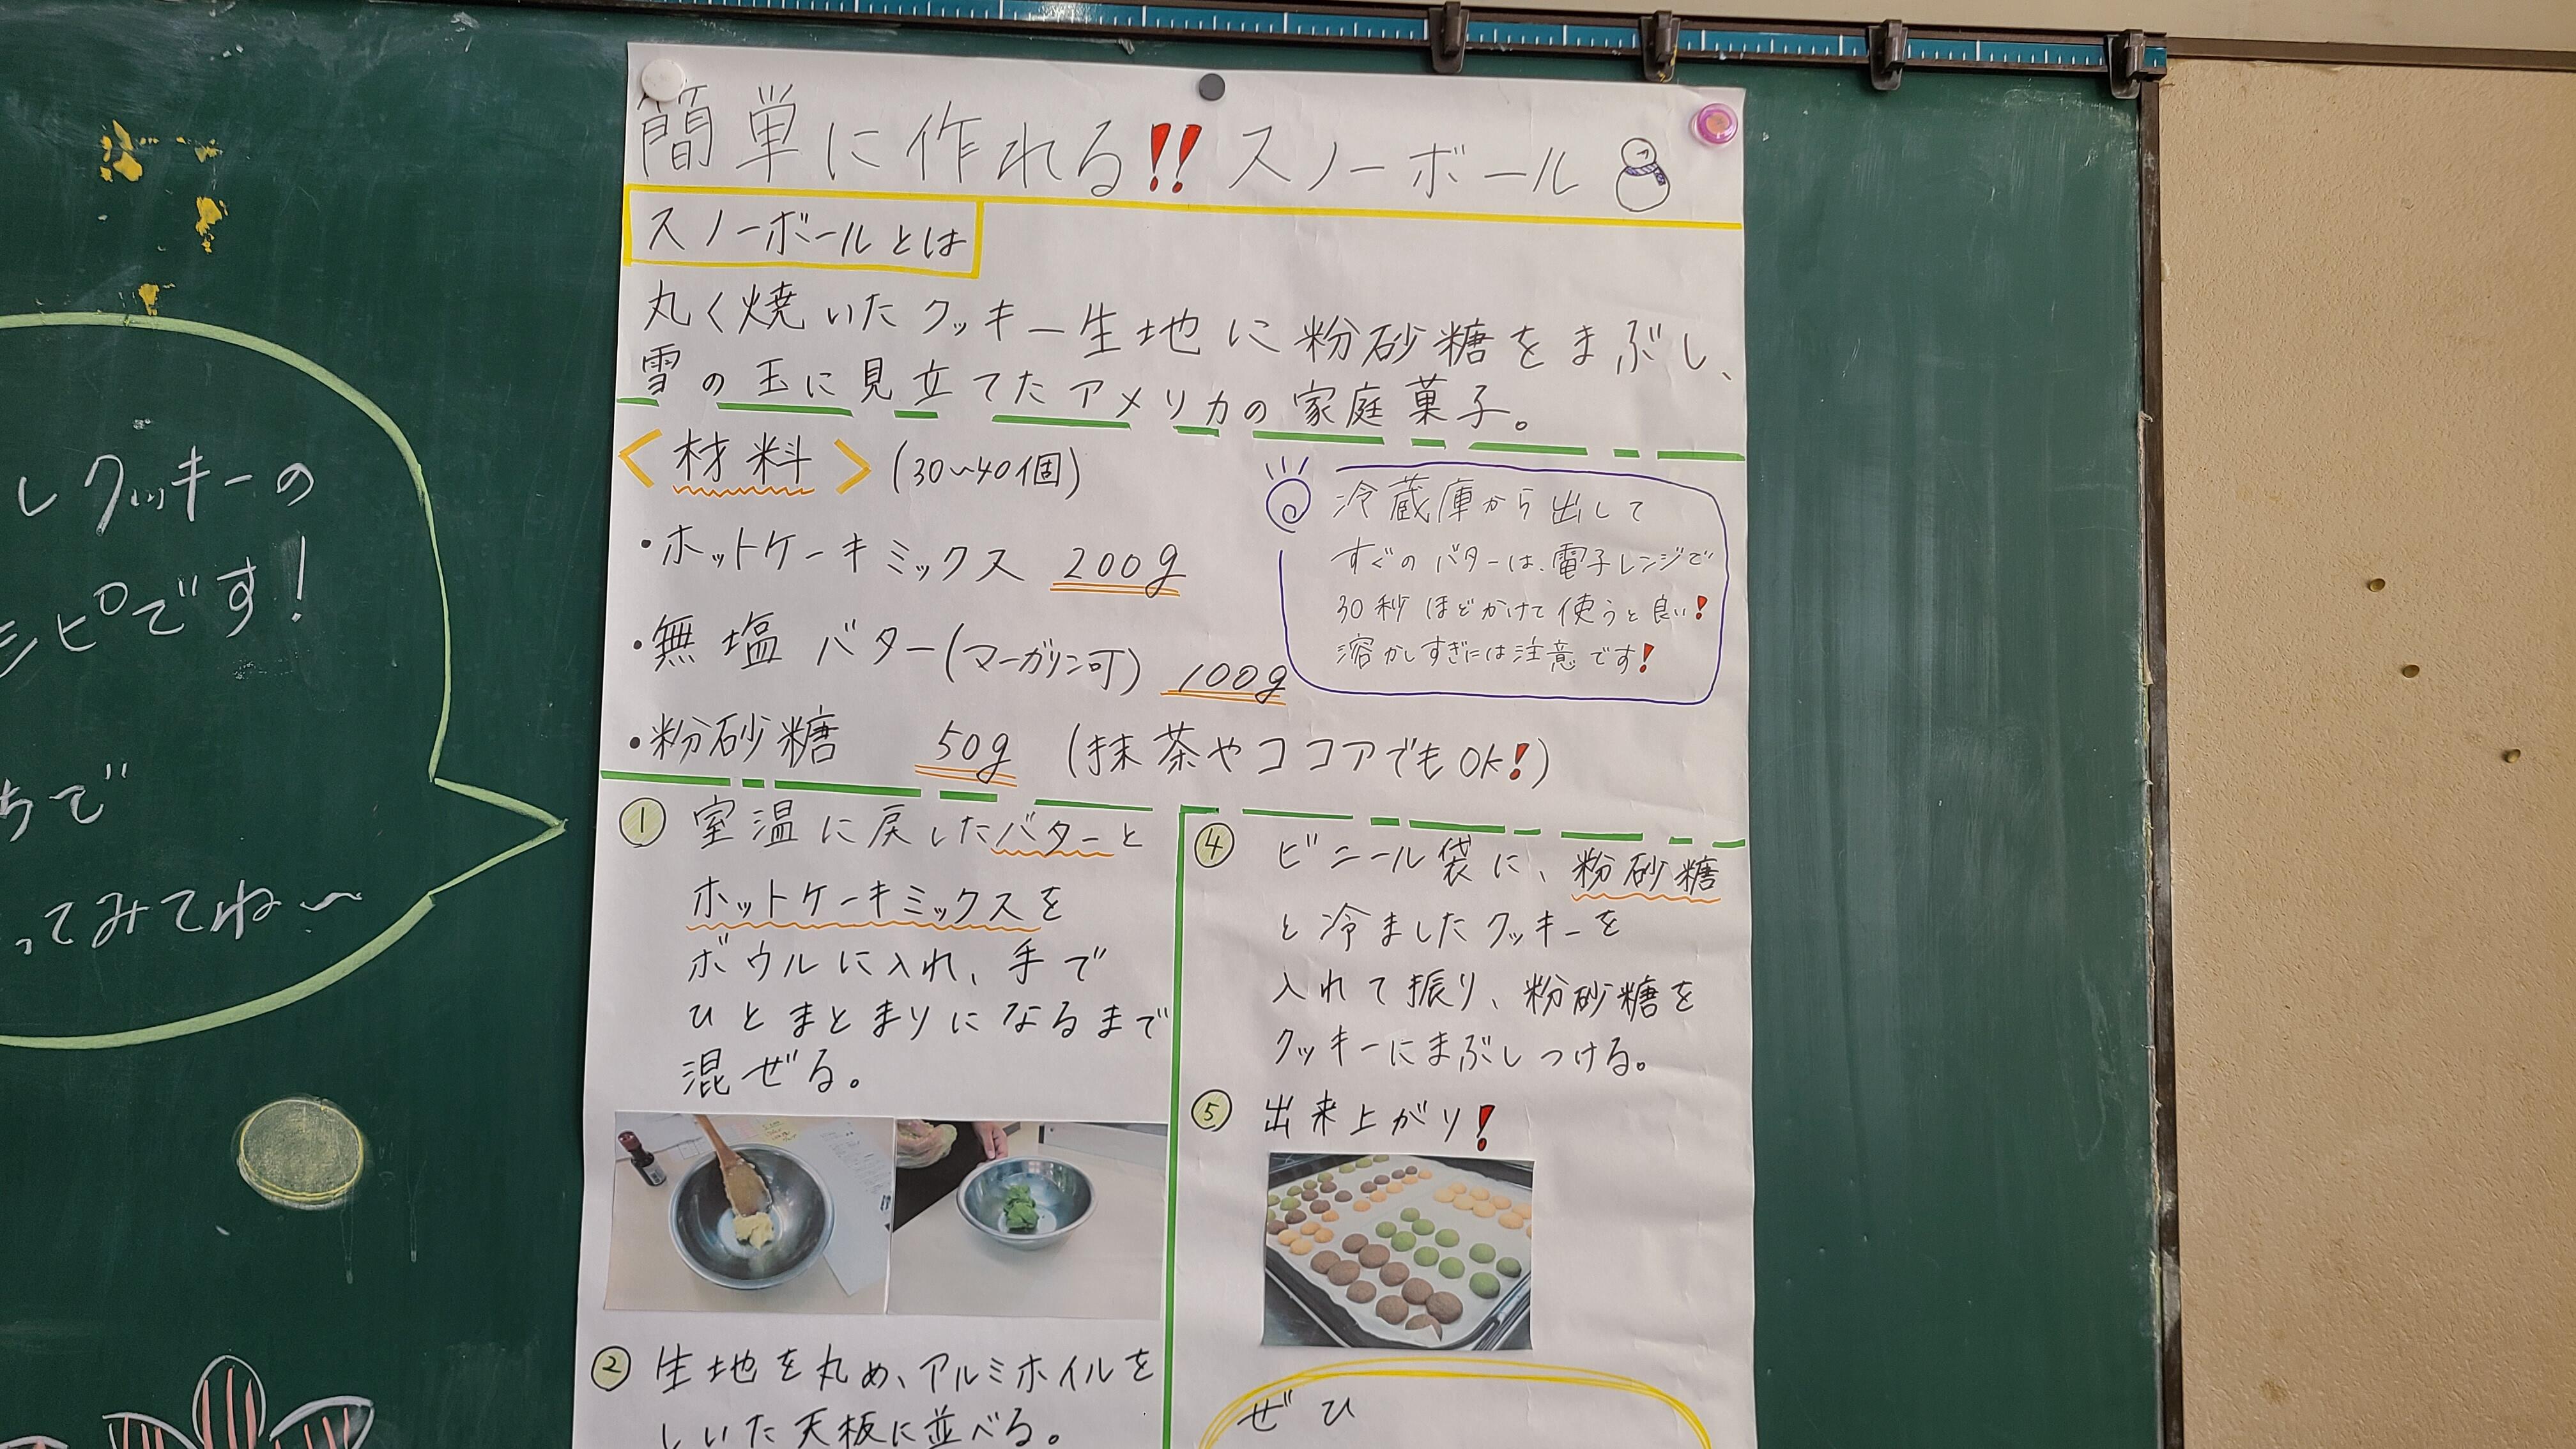 簡単に作れる!! スノーボール
スノーボールとは
丸く焼いたクッキー生地に粉砂糖をまぶし、
雪の玉に見立てたアメリカの家庭菓子。
<材料> (30~40個)
・ホットケーキミックス 200g
・無塩バター(マーガリン可) 100g
・粉砂糖 50g (抹茶やココアでもOK!)
冷蔵庫から出して
すぐのバターは、電子レンジで
30秒ほどかけて使うと良い!
溶かしすぎには注意です!
① 室温に戻したバターと
ホットケーキミックスを
ボウルに入れ、手で
ひとまとまりになるまで
混ぜる。
② 生地を丸め、アルミホイルを
しいた天板に並べる。
④ ビニール袋に、粉砂糖
と冷ましたクッキーを
入れて振り、粉砂糖を
クッキーにまぶしつける。
⑤ 出来上がり!
ぜひ
しクッキーの
シピです!
ちで
ってみてね〜